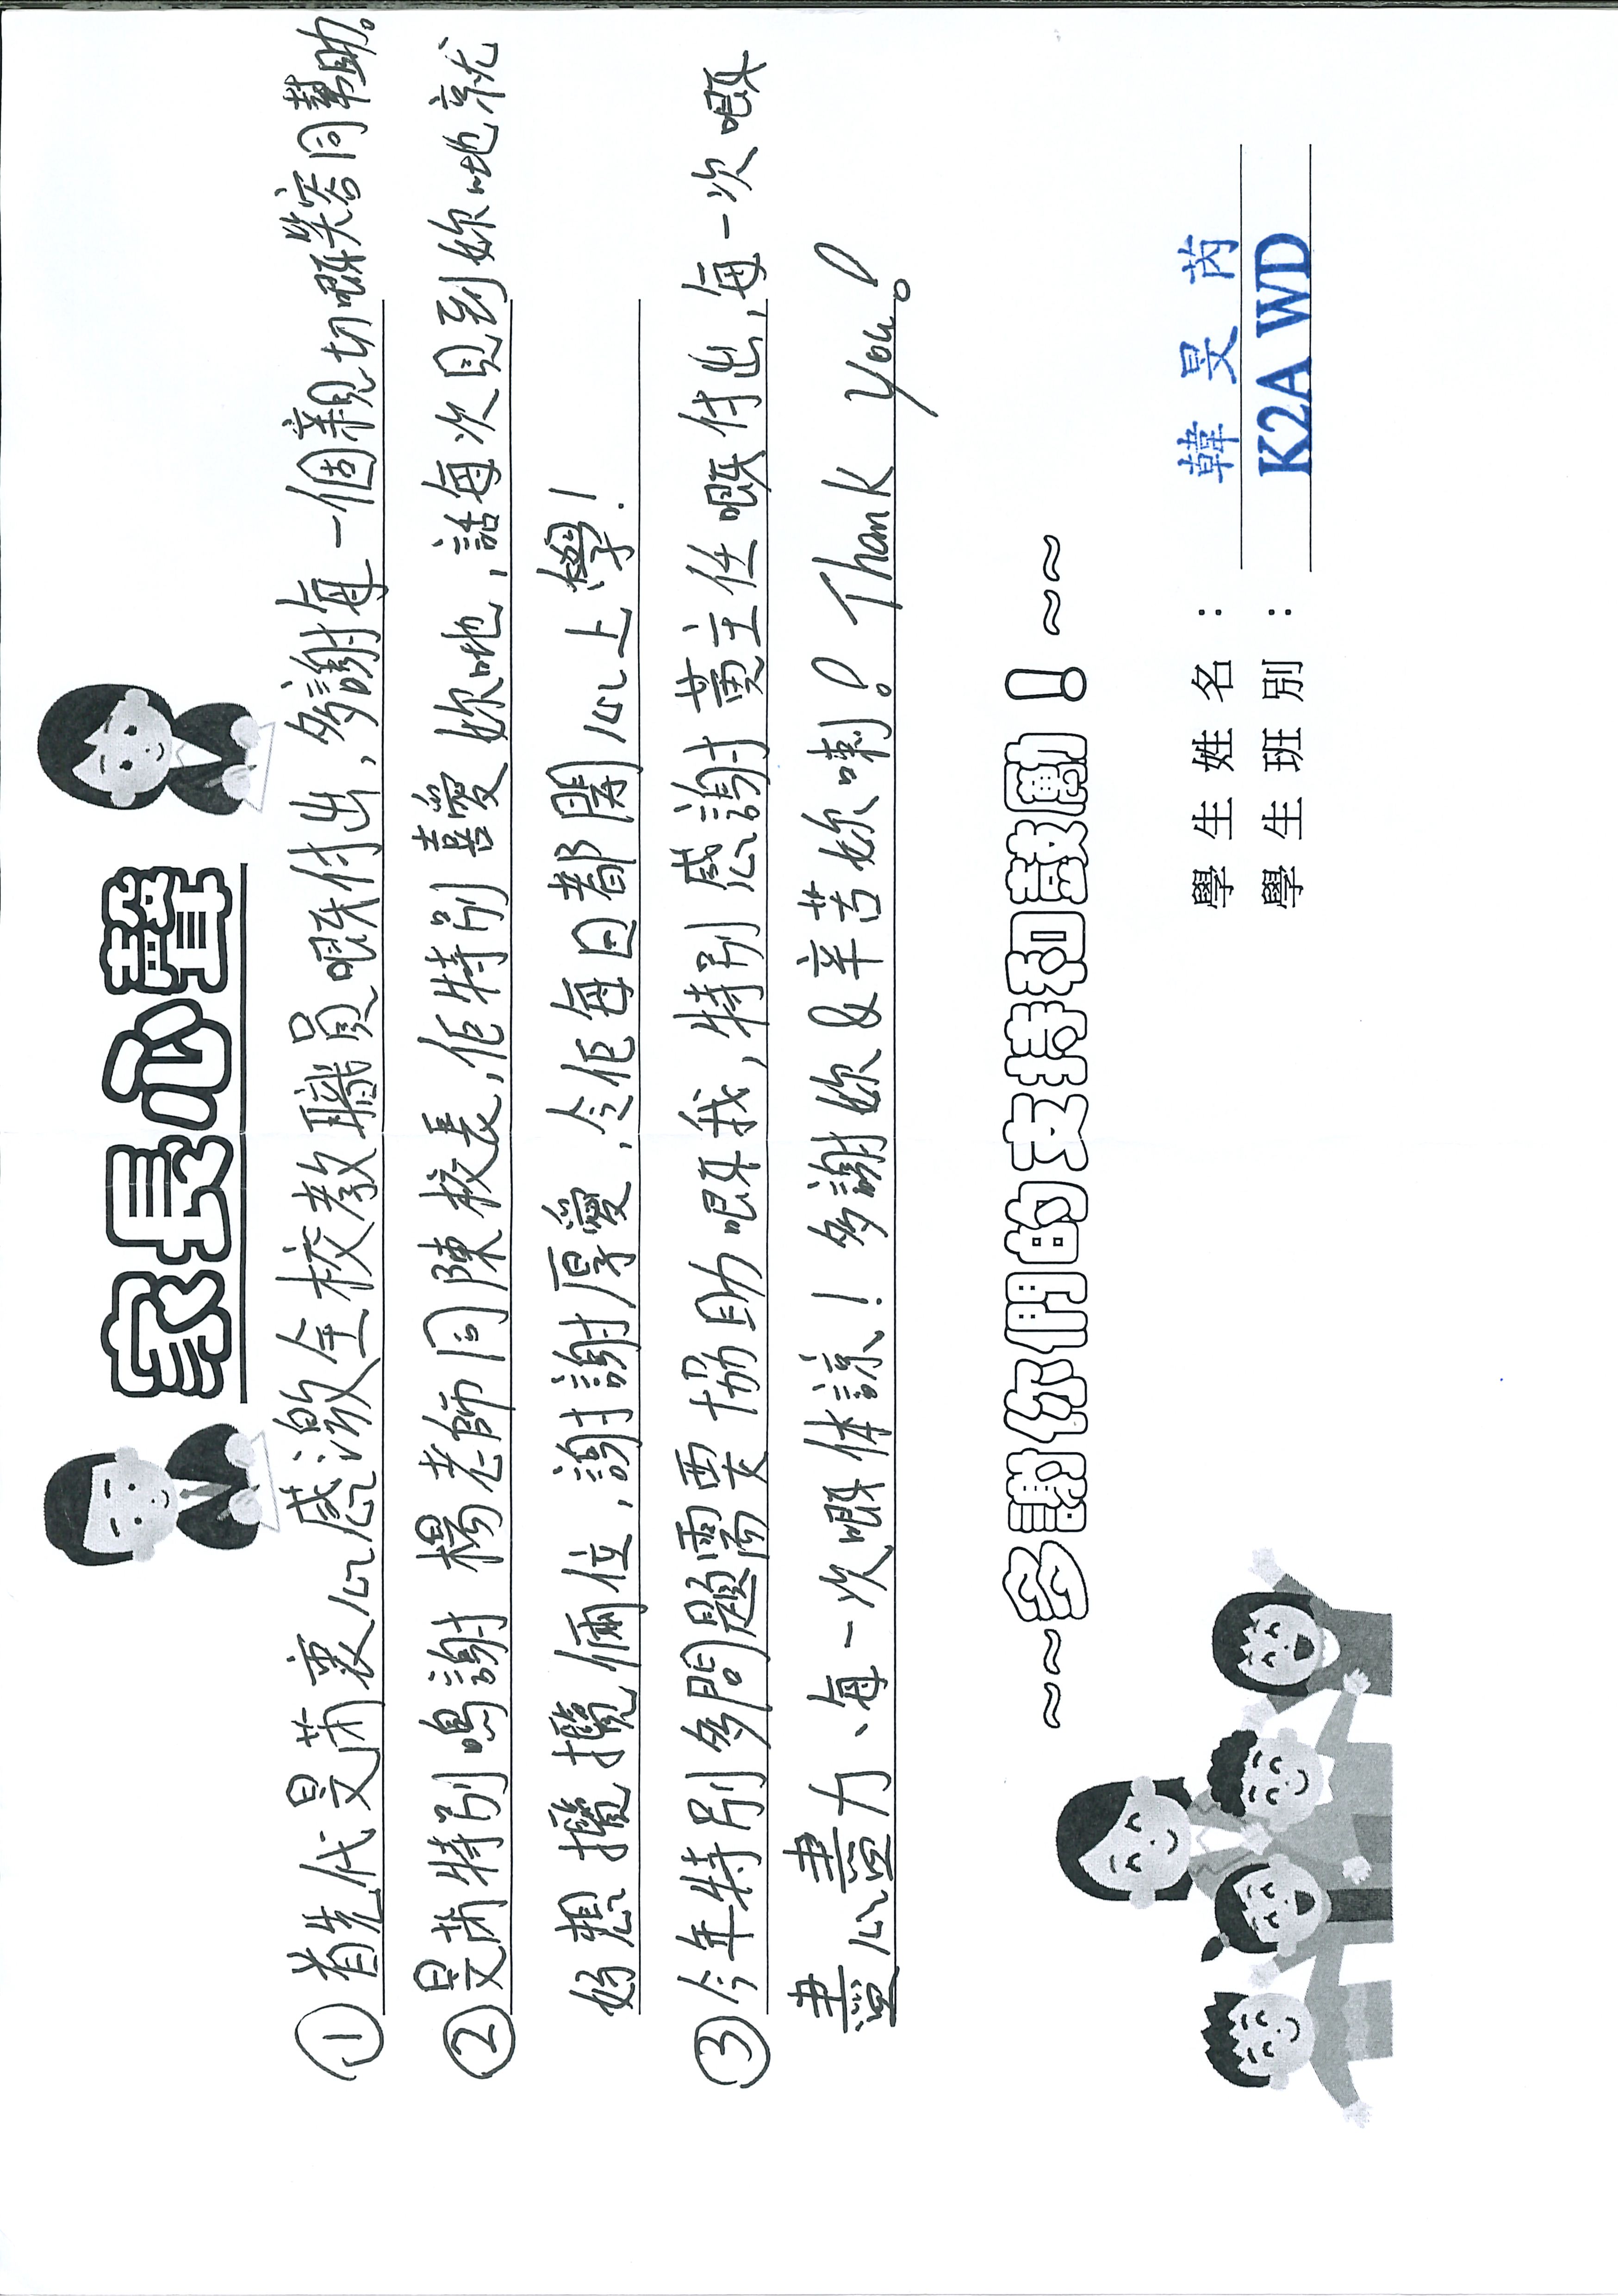 家長心聲
①首先代旻芮衷心感激全校教職員嘅付出，多謝每一個親切嘅笑容同幫助。
②旻芮特別鳴謝 楊老師同陳校長，佢特別喜愛妳哋，話每次見到妳哋就
好想攬攬倆位，謝謝厚愛，令佢每日都開心上學！
③今年特別多問題需要協助嘅我，特別感謝黃主任嘅付出，每一次嘅
盡心盡力、每一次嘅体諒！多謝妳&辛苦妳喇！Thank you！
~~多謝你們的支持和鼓勵！~~
學生姓名：韓旻芮
學生班別：K2A WD